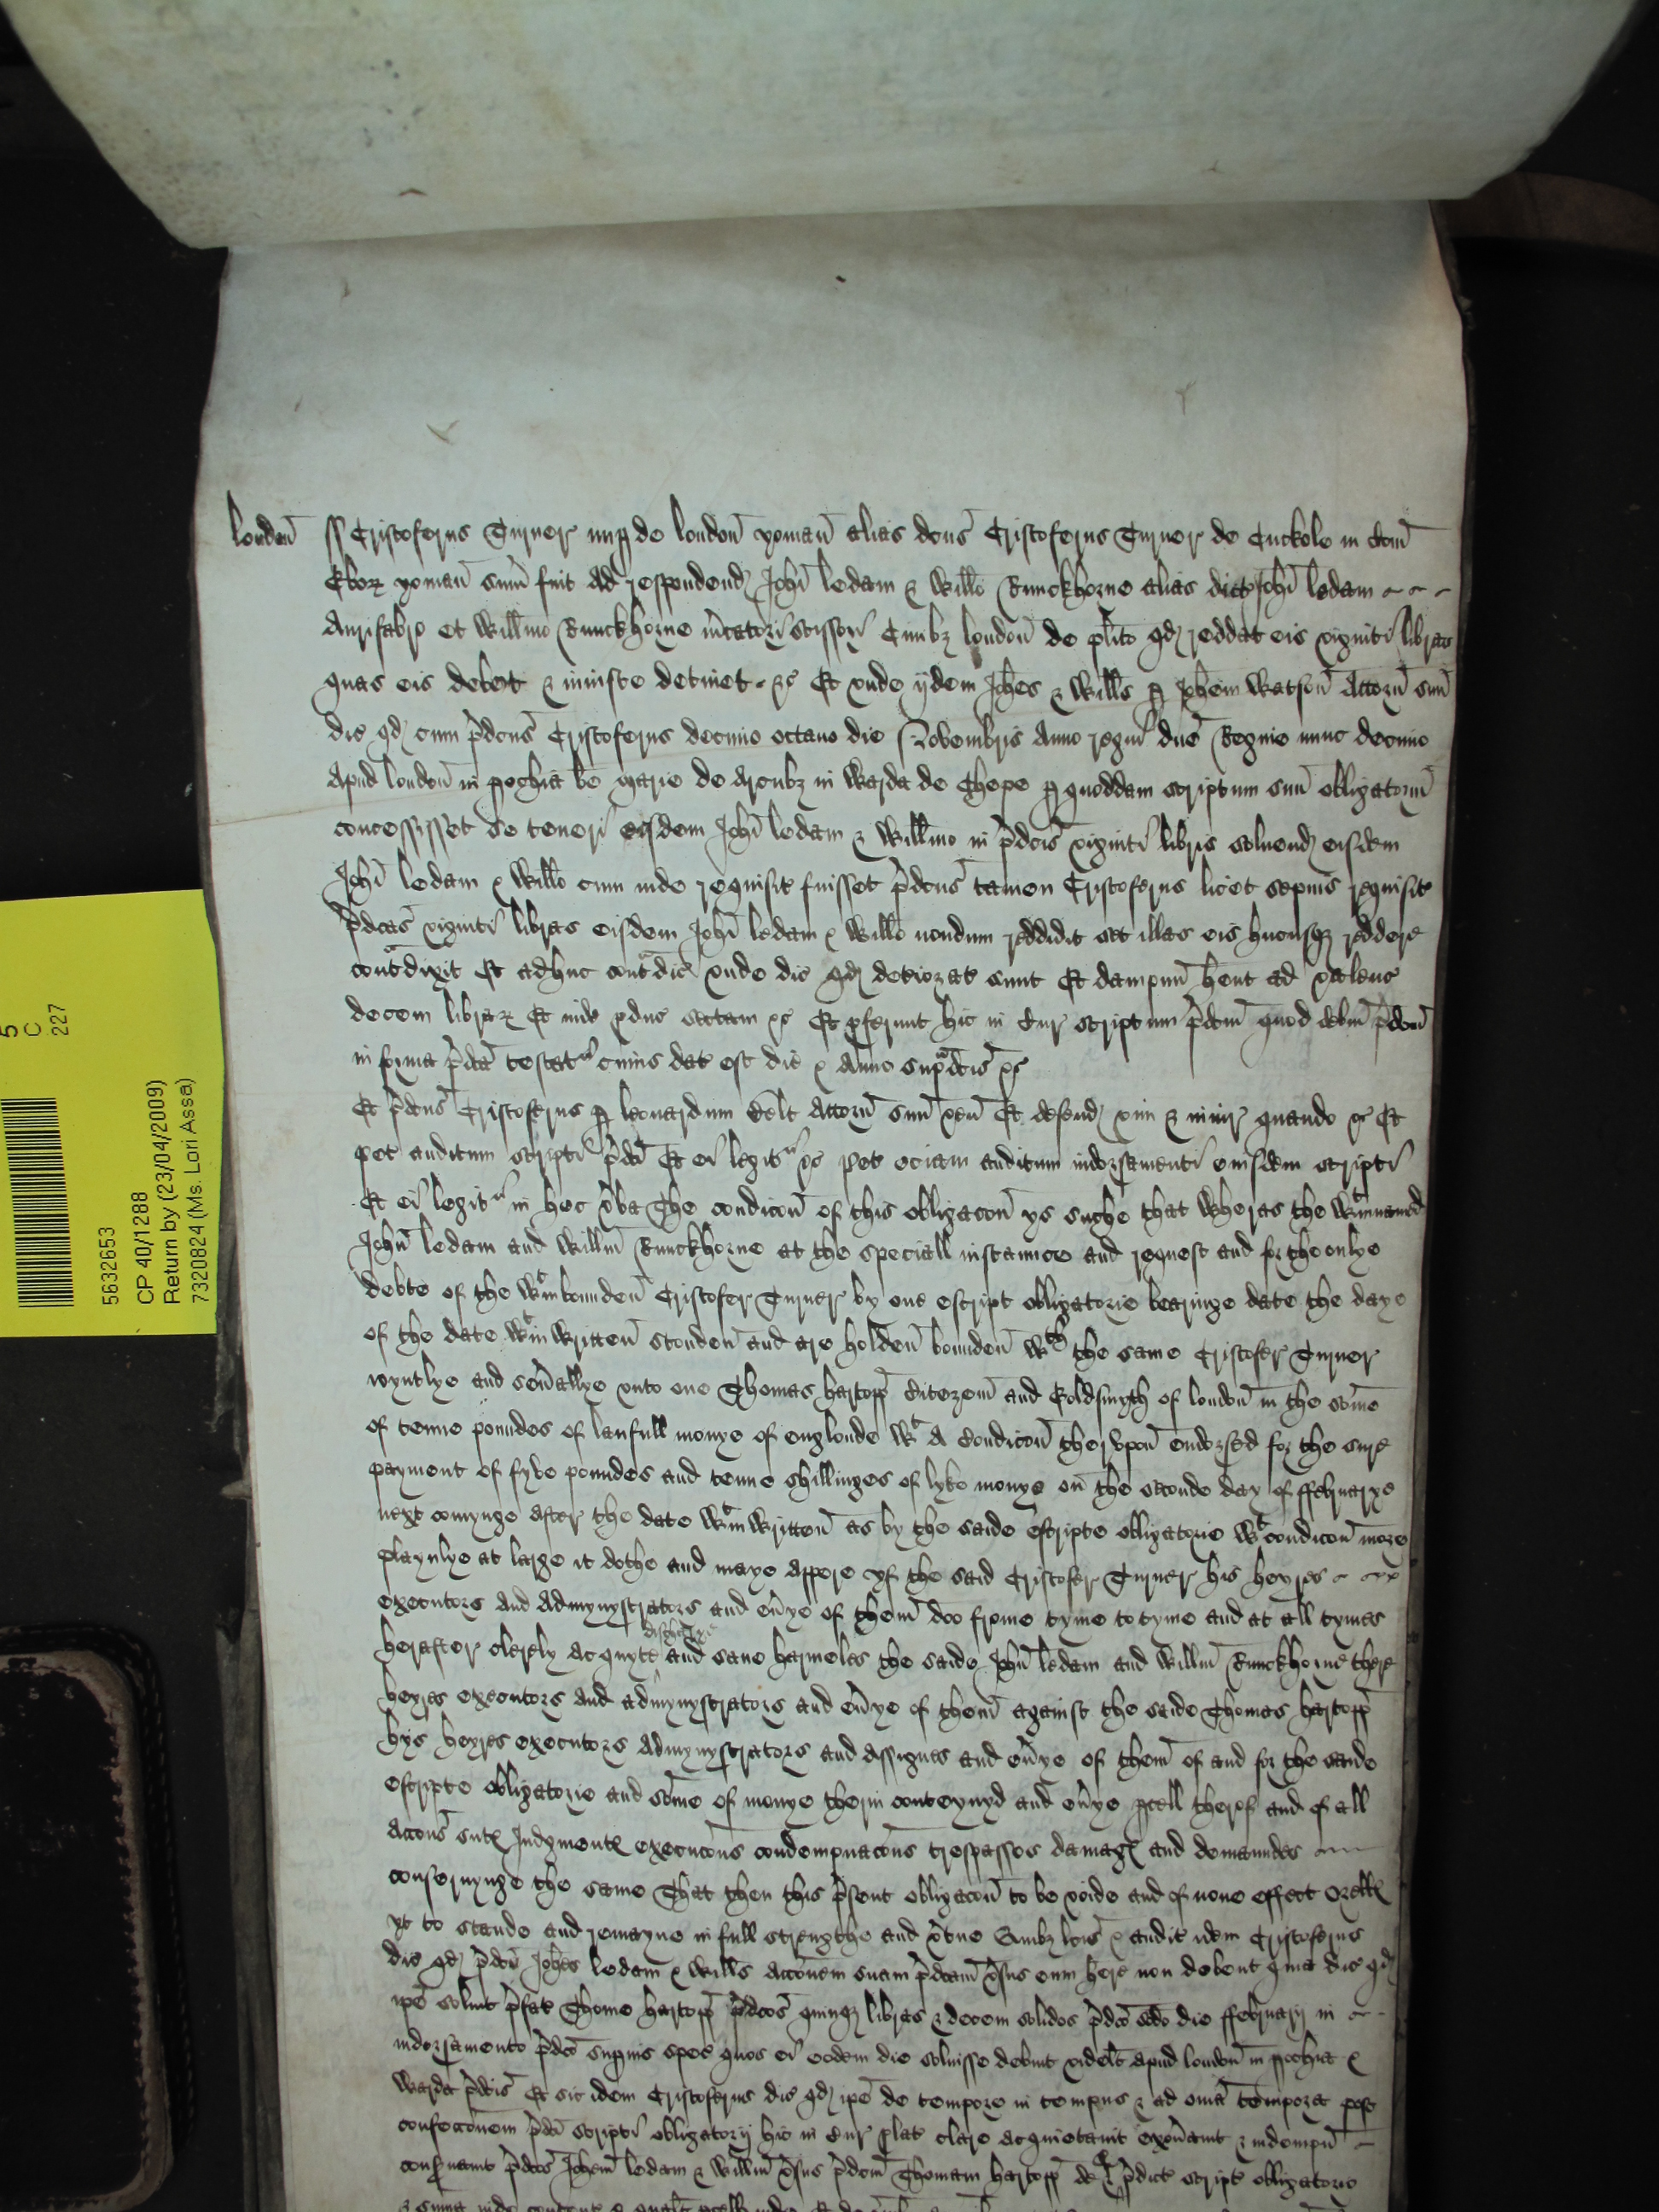 London ss Cristoferus Turner nup de London yoman alias dcus Cristoferus Turner de Cuckole in Com
Ebor yoman sum fuit ad respondend Johi Ledam & Willo Runckhorne alias dict Johi Ledam
Aurifabro et Willmo Runckhorne mcatori scissori Civibz London de plito qd reddat eis viginti libras
quas eis debet & iniuste detinet &c Et unde ijdem Johes & Wills p Johem Watson Attorn suu
dic qd cum pdcus Cristoferus decimo octavo die Novembris Anno regni dne Regine nunc decimo
apud London in pochia be Marie de Arcubz in Warda de Chepe p quoddam scriptum suu obligatorm
concessisset se teneri eisdem Johi Ledam & Willmo in pdcis viginti libris solvend eisdem
Johi Ledam & Willo cum inde requisit fuisset pdcus tamen Cristoferus licet sepius requisit
pdcas viginti libras eisdem Johi Ledam & Willo nondum reddidit set illas eis hucusqz reddere
contadixit Et adhuc contadic unde dic qd deteriorat sunt Et dampnu hent ad valenc
decem librar Et inde pduc sectam &c Et pferunt hic in Cur scriptum pdcm quod debm pdcm
in forma pdca testatr cuius dat est die & Anno supadcis &c
Et pdcus Cristoferus p Leonardum Attorn suu ven Et defend vim & iniur quando &c Et
pet auditum scripti pdci Et ei legitr &c pet eciam auditum indorsamenti eiusdem scripti
Et ei legitr in hec vba The condicon of this obligacon ys suche that Wheras the Wtinnamed
John Ledam and Willm Runckhorne at the speciall instaunce and request and for the onlye
debte of the Wtinbounden Cristofer Turner by one escript obligatorie bearinge date the daye
of the date Wtin Written stonden and are holden bounden Wth the same Cristofer Turner
ioyntlye and sevallye unto one Thomas Hartopp Citezem and Goldsmyth of London in the some
of tenne poundes of laufull monye of englonde Wt A Condicon therupon endorsed for the sure
payment of fyve poundes and tenne shillinges of lyke monye on the seconde day of ffebruarye
next comynge after the date Wtin Written as by the saide escripte obligatorie Wt condicon more
playnlye at large it dothe and maye appere yf the said Cristofer Turner his heyres
executors and Admynystrators and evye of them doo frome tyme to tyme and at all tymes
herafter clerely acquyte discharge and save harmeles the saide John Ledam and Willm Runckhorne there
heyres executors and admynystrators and evye of them against the saide Thomas Hartopp
hys heyres executors Admynystrators and assignes and evye of them of and for the saide
escripte obligatorie and some of monye therin conteynyd and evye pcell therof and of all
accons sutes Judgmentes execucons condempnacons trespasses damages and demaundes
consernynge the same That then this psent obligacon to be voide and of none effect or elles
yt to stande and remayne in full strengthe and vtue Quibz lcis & audit idem Cristoferus
dic qd pdci Johes Ledam & Wills accionem suam pdcam vsus eum here non debent quia dic qd
ipe solvit pfat Thome Hartopp pdcos quinqz libras & decem solidos pdco scdo die ffebruarij in
indorsamento pdco supius spec quos ei eodem die solvisse debuit videlt apud London in pochia &
Warda pdcis Et sic idem Cristoferus dic qd ipe de tempore in tempus & ad omia tempora post
confeccionem pdci scripti obligatorij hic in Cur plat clare acquietavit exonavit & indempn
conservavit pdcos Johem Ledam & Willm vsus pdcm Thomam Hartopp de pdict script obligatorio
5
C
227
5632653
CP 40/1288
Return by (23/04/2009)
7320824 (Ms. Lori Assa)